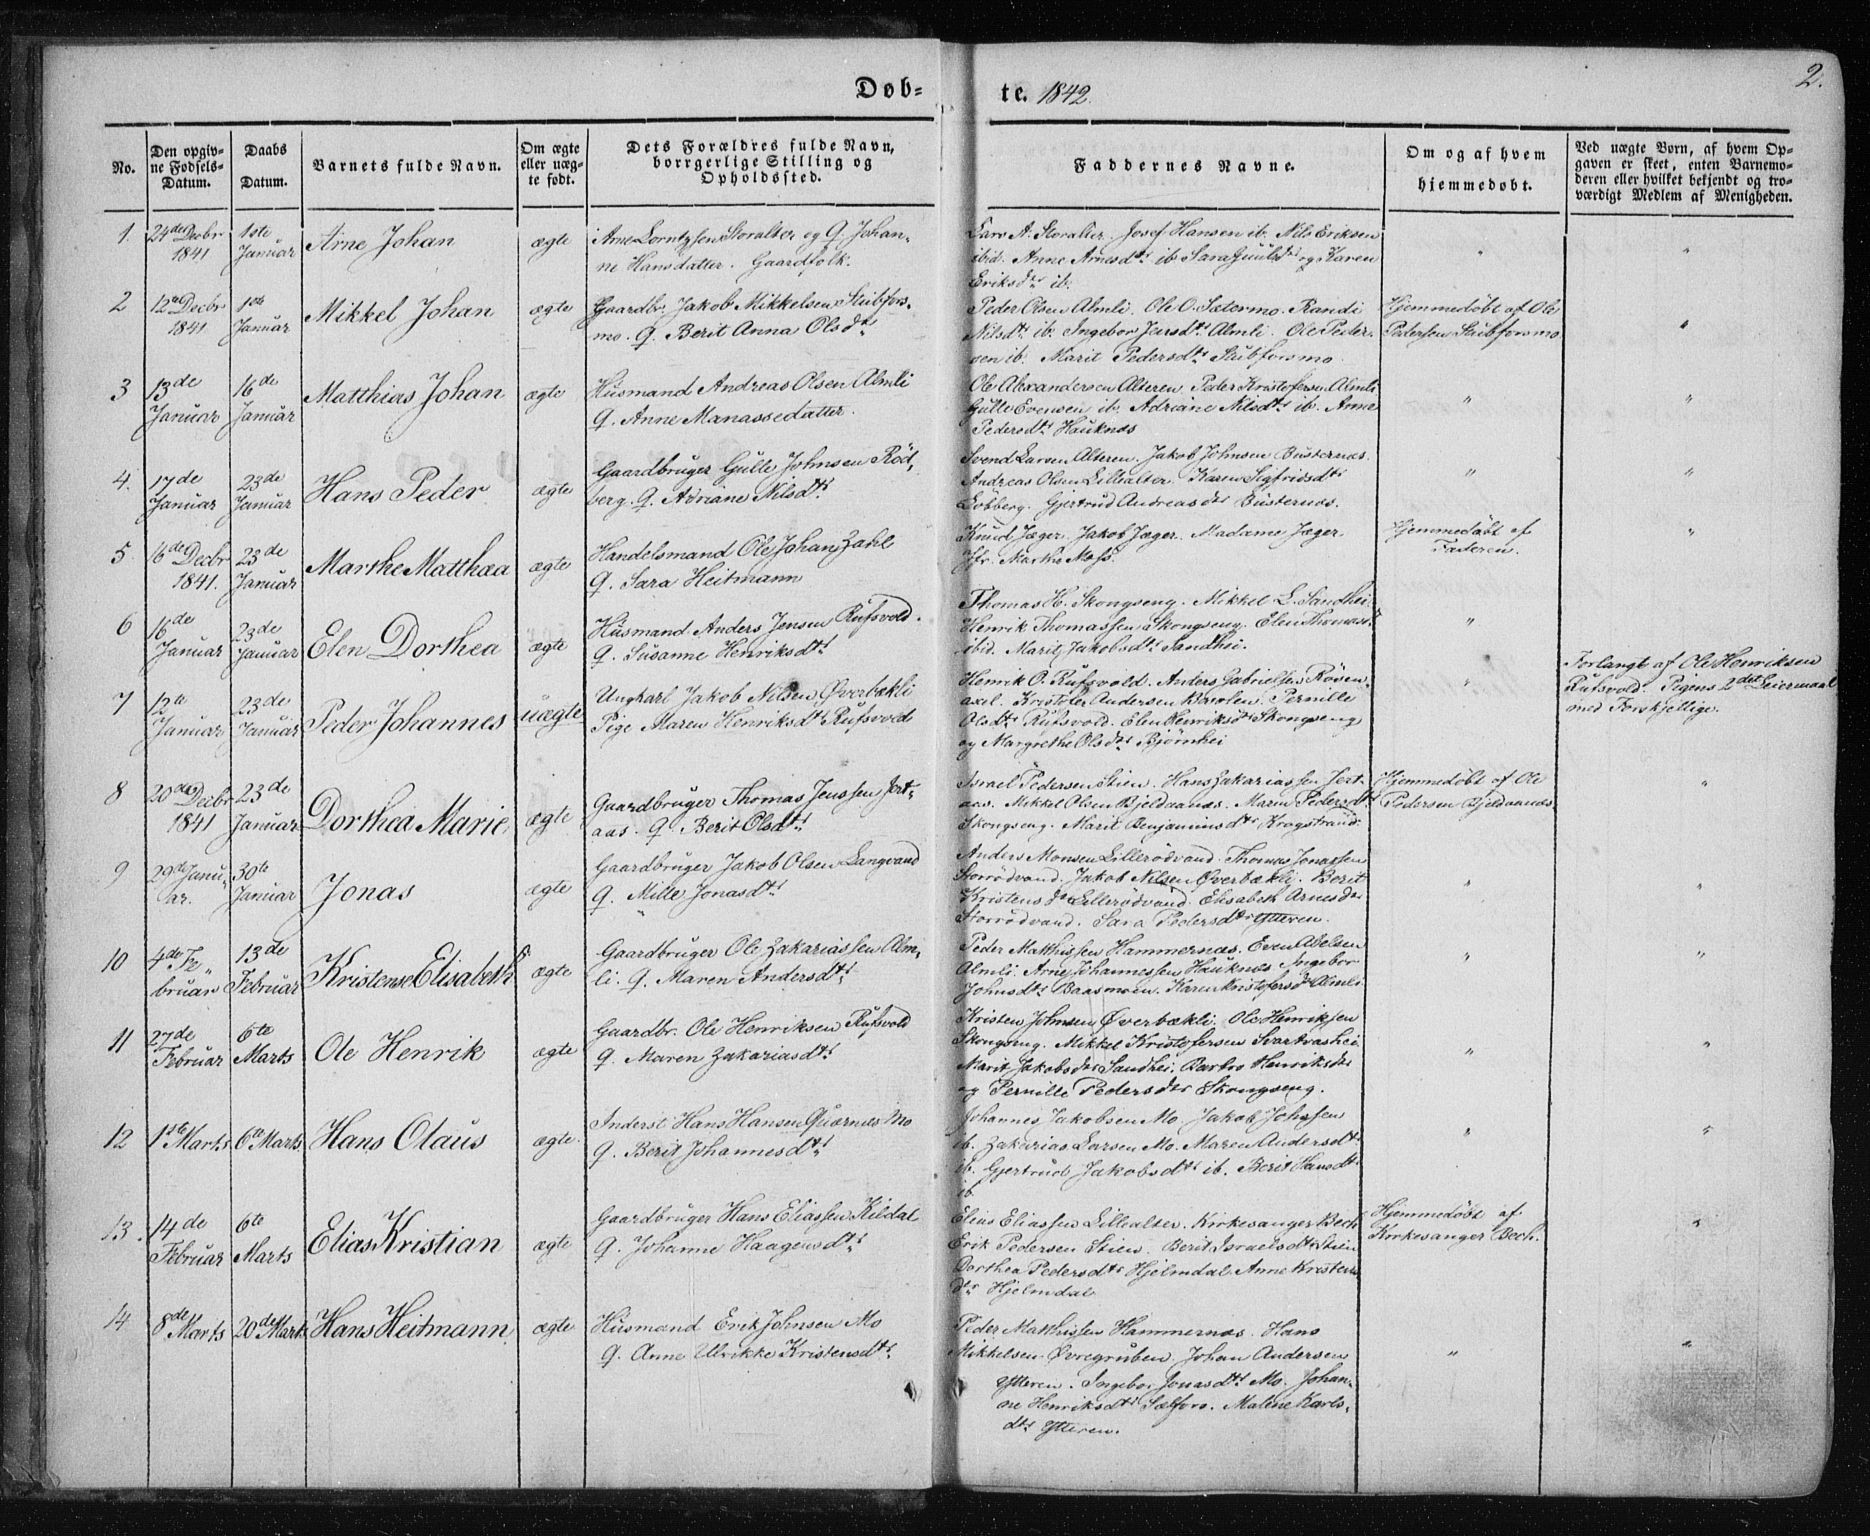 Døb-
te. 1842.
2.
No.
Den opgiv-
ne Fødsels-
Datum.
Daabs
Datum.
Barnets fulde Navn.
Om ægte
eller uæg-
te født.
Dets Forældres fulde Navn,
borrgerlige Stilling og
Opholdssted.
Faddernes Navne.
Om og af hvem
hjemmedøbt.
Ved uægte Børn, af hvem Op-
gaven er skeet, enten Barnemo-
deren eller hvilket bekjendt og tro-
værdigt Medlem af Menigheden.
1.
24de Decbr
1841
1ste
Januar
Arne Johan
ægte
Arne Lorntzsen Storalter og Q. Johan-
ne Hansdatter. Gaardfolk.
Lars A. Storalter. Josef Hansen ib. Nils Eriksen
ibid. Anne Arnesdtr ib. Sara Guulsdr og Karen
Eriksdr ib.
"
"
2
12te Decbr
1841
1ste
Januar
Mikkel Johan
ægte
Gaardbr. Jakob Mikkelsen Stubfors-
mo. Q. Berit Anna Olsdtr
Peder Olsen Almli. Ole O. Sætermo. Randi
Nilsdtr ib. Ingebor Jarsdtr Almli. Ole Peder-
sen ib. Marit Pedersdtr Stubforsmo.
Hjemmedøbt af Ole
Pedersen Stubforsmo
"
3
13de
Januar
16de
Januar
Matthias Johan
ægte
Husmand Andreas Olsen Almli
Q. Anne Manassedatter.
Ole Alexandersen Alteren. Peder Kristofersen Almli
Gulle Evensen ib. Adriane Nilsdtr ib. Anna
Pedersdtr Hauknæs
"
"
4.
17de
Januar
23de
Januar
Hans Peder
ægte
Gaardbruger Gulle Johnsen Rød-
berg. Q. Adriane Nilsdtr
Svend Larsen Alteren. Jakob Johnsen Busternæs.
Andreas Olsen Lillealter. Karen Sigfridsdtr
Løbberg. Gjertrud Andreasdtr Busternæs.
"
"
5.
16de Decbr
1841.
23de
Januar
Marthe Matthea
ægte
Handelsmand Ole Johan Zahl
Q. Sara Heitmann
Knud Jæger. Jakob Jæger. Madame Jæger.
Jfr. Marthe Moss.
Hjemmedøbt af
Faderen.
"
6
16de
Januar
23de
Januar
Elen Dorthea
ægte
Husmand Anders Jensen Rufsvold.
Q. Susanne Henriksdtr
Thomas H. Skongseng. Mikkel L. Sandhei.
Henrik Thomassen Skongseng. Elen Thomasdr
ibid. Marit Jakobsdtr Sandhei.
"
7
12te
Januar
23de
Januar
Peder Johannes
uægte
Ungkarl Jakob Nilsen Øverbækli
Pige Maren Henriksdtr Rufsvold
Henrik O. Rufsvold. Anders Gabrielsen Røven-
axel. Kristofer Andersen Basolen. Pernille
Olsdtr Rufsvold. Elen Henriksdtr Skongseng
og Margrethe Olsdtr Bjørnhei
"
Forlangt af Ole Henriksen
Rufsvold. Pigens 2det Leiermaal
med Forskjellige.
8
20de Decbr
1841
23de
Januar
Dorthea Marie
ægte
Gaardbruger Thomas Jenssen Jert-
aas. Q. Berit Olsdtr
Israel Pedersen Stien. Hans Zakariassen Jert-
aas. Mikkel Olsen Bjeldaanæs. Maren Pedersdtr
Skongseng. Marit Benjaminsdtr Krogstrand
Hjemmedøbt af Ole
Pedersen Bjeldaanæs
"
9
29de Janu-
ar.
30te
Januar
Jonas
ægte
Gaardbruger Jakob Olsen Langvand
Q. Mille Jonasdtr
Anders Monsen Lillerødvand. Thomas Jonassen
Storrødvand. Jakob Nilsen Øverbækli. Berit
Kristensdtr Lillerødvand. Elisabeth Arnesdr
Storrødvand. Sara Pedersdtr Ytteren.
"
"
10
4de Fe-
bruar
13de
Februar
Kristense Elisabeth
ægte
Gaardbruger Ole Zakariassen Alm-
li. Q. Maren Andersdtr
Peder Matthissen Hammernæs. Even Abelsen
Almli. Arne Johannessen Hauknæs. Ingebor
Johnsdtr Baasmoen. Karen Kristofersdr Almli
"
"
11
27de
Februar
6te
Marts
Ole Henrik
ægte
Gaardbr. Ole Henriksen Rufsvold
Q. Maren Zakariasdtr
Kristen Johnsen Øverbækli. Ole Henriksen
Skongseng. Mikkel Kristofersen Svartvashei
Marit Jakobsdtr Sandhei. Barbro Henriksdtr
og Pernille Pedersdtr Skongseng.
"
"
12
1ste Marts
6te Marts
Hans Olaus
ægte.
Inderst Hans Hansen Quærnæs Mo
Q. Berit Johannesdtr
Johannes Jakobsen Mo. Jakob Johnsen
ib. Zakarias Larsen Mo. Maren Andersdtr
ib. Gjertrud Jakobsdtr ib. Berit Hansdtr
ib.
"
"
13.
14de
Februar
6te
Marts
Elias Kristian
ægte
Gaardbruger Hans Eliassen Kildal
Q. Johanne Haagensdtr
Elias Eliassen Lillealter. Kirkesanger Bech
Erik Pedersen Stien. Berit Israelsdtr Stien
Dorthea Pedersdtr Hjelmdal. Anne Kristens-
dtr Hjelmdal.
Hjemmedøbt af
Kirkesanger Bech.
"
14
8de Marts
20de Marts
Hans Heitmann
ægte
Husmand Erik Johnsen Mo
Q. Anne Ulrikke Kristensdtr
Peder Matthissen Hammernæs. Hans
Mikkelsen Øvregruben. Johan Andersen
Ytteren. Ingebor Jonasdtr Mo. Johan-
ne Henriksdtr Sælfors. Malene Karls-
dtr Ytteren.
"
"